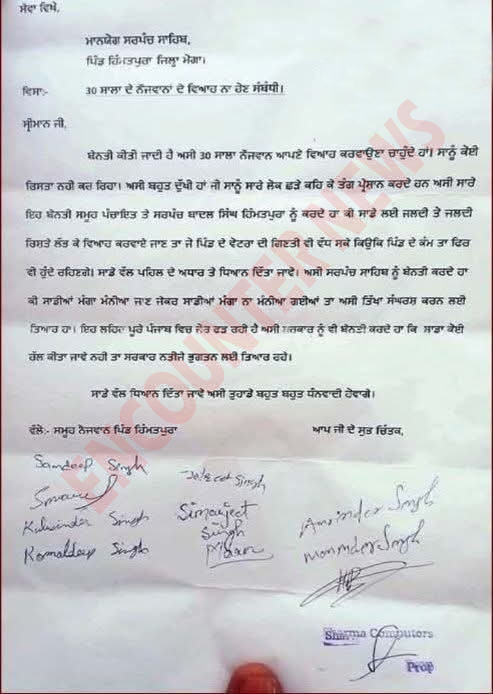 ਸੇਵਾ ਵਿਖੇ,
ਮਾਨਯੋਗ ਸਰਪੰਚ ਸਾਹਿਬ,
ਪਿੰਡ ਹਿੰਮਤਪੁਰਾ ਜਿਲ੍ਹਾ ਮੋਗਾ।
ਵਿਸ਼ਾ:- 30 ਸਾਲਾ ਦੇ ਨੌਜਵਾਨਾਂ ਦੇ ਵਿਆਹ ਨਾ ਹੋਣ ਸੰਬੰਧੀ।
ਸ੍ਰੀਮਾਨ ਜੀ,
ਬੇਨਤੀ ਕੀਤੀ ਜਾਂਦੀ ਹੈ ਅਸੀ 30 ਸਾਲਾ ਨੌਜਵਾਨ ਆਪਣੇ ਵਿਆਹ ਕਰਵਾਉਣਾ ਚਾਹੁੰਦੇ ਹਾਂ। ਸਾਨੂੰ ਕੋਈ
ਰਿਸਤਾ ਨਹੀ ਕਰ ਰਿਹਾ। ਅਸੀ ਬਹੁਤ ਦੁੱਖੀ ਹਾਂ ਜੀ ਸਾਨੂੰ ਸਾਰੇ ਲੋਕ ਛੜੇ ਕਹਿ ਕੇ ਤੰਗ ਪ੍ਰੇਸ਼ਾਨ ਕਰਦੇ ਹਨ ਅਸੀ ਸਾਰੇ
ਇਹ ਬੇਨਤੀ ਸਮੂਹ ਪੰਚਾਇਤ ਤੇ ਸਰਪੰਚ ਬਾਦਲ ਸਿੰਘ ਹਿੰਮਤਪੁਰਾ ਨੂੰ ਕਰਦੇ ਹਾ ਕੀ ਸਾਡੇ ਲਈ ਜਲਦੀ ਤੇ ਜਲਦੀ
ਰਿਸ਼ਤੇ ਲੱਭ ਕੇ ਵਿਆਹ ਕਰਵਾਏ ਜਾਣ ਤਾ ਜੋ ਪਿੰਡ ਦੇ ਵੋਟਰਾ ਦੀ ਗਿਣਤੀ ਵੀ ਵੱਧ ਸਕੇ ਕਿਉਕਿ ਪਿੰਡ ਦੇ ਕੰਮ ਤਾ ਫਿਰ
ਵੀ ਹੁੰਦੇ ਰਹਿਣਗੇ। ਸਾਡੇ ਵੱਲ ਪਹਿਲ ਦੇ ਅਧਾਰ ਤੇ ਧਿਆਨ ਦਿੱਤਾ ਜਾਵੇ। ਅਸੀ ਸਰਪੰਚ ਸਾਹਿਬ ਨੂੰ ਬੇਨਤੀ ਕਰਦੇ ਹਾ
ਕੀ ਸਾਡੀਆਂ ਮੰਗਾ ਮੰਨੀਆ ਜਾਣ ਜੇਕਰ ਸਾਡੀਆਂ ਮੰਗਾ ਨਾ ਮੰਨੀਆ ਗਈਆਂ ਤਾ ਅਸੀ ਤਿੱਖਾ ਸੰਘਰਸ਼ ਕਰਨ ਲਈ
ਤਿਆਰ ਹਾਂ। ਇਹ ਲਹਿਰ ਪੂਰੇ ਪੰਜਾਬ ਵਿਚ ਜੋਰ ਫੜ ਰਹੀ ਹੈ ਅਸੀ ਸਰਕਾਰ ਨੂੰ ਵੀ ਬੇਨਤੀ ਕਰਦੇ ਹਾ ਕਿ ਸਾਡਾ ਕੋਈ
ਹੱਲ ਕੀਤਾ ਜਾਵੇ ਨਹੀ ਤਾ ਸਰਕਾਰ ਨਤੀਜੇ ਭੁਗਤਨ ਲਈ ਤਿਆਰ ਰਹੇ।
ਸਾਡੇ ਵੱਲ ਧਿਆਨ ਦਿੱਤਾ ਜਾਵੇ ਅਸੀ ਤੁਹਾਡੇ ਬਹੁਤ ਬਹੁਤ ਧੰਨਵਾਦੀ ਹੋਵਾਗੇ।
ਵੱਲੋ:- ਸਮੂਹ ਨੌਜਵਾਨ ਪਿੰਡ ਹਿੰਮਤਪੁਰਾ ਆਪ ਜੀ ਦੇ ਸੁਭ ਚਿੰਤਕ,
Samdeep Singh
Kulwinder Singh
Simarjeet Singh
Romaldeep Singh
Amrinder Singh
Maninder Singh
Sharma Computors
Prop
ENCOUNTER NEWS